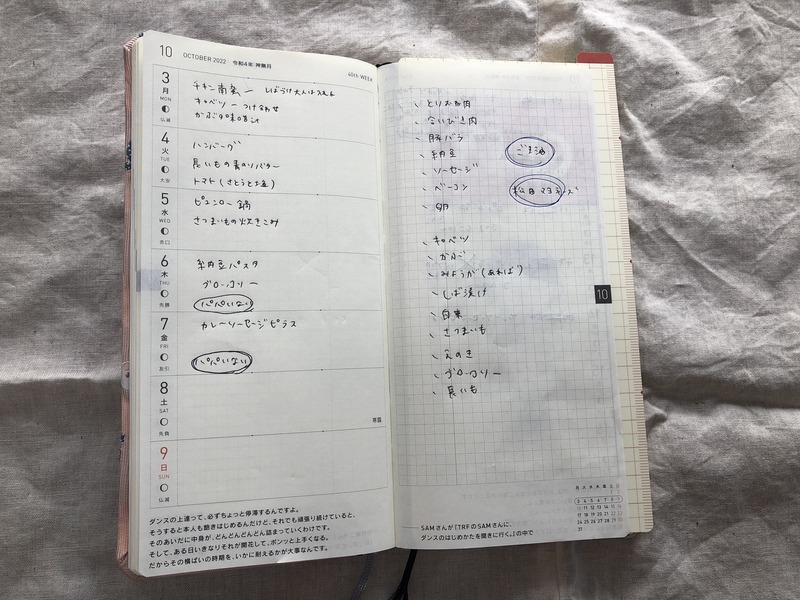 10 OCTOBER 2022 令和4年 神無月
40th WEEK
3 月 MON 仏滅
チキン南蛮 ー しばらけ大人は入れる
キャベツ ー つけ合わせ
かぶの味噌汁
4 火 TUE 大安
ハンバーグ
長いもの青のりバター
トマト(さとうと塩)
5 水 WED 赤口
ピェンロー鍋
さつまいもの炊きこみ
6 木 THU 先勝
納豆パスタ
ブロッコリー
パパいない
7 金 FRI 友引
カレーソーセージピラフ
パパいない
8 土 SAT 先負
寒露
9 日 SUN 仏滅
ダンスの上達って、必ずちょっと停滞するんですよ。
そうすると本人も飽きはじめるんだけど、それでも頑張り続けていると、
そのあいだに中身が、どんどんどんどん詰まっていくわけです。
そして、ある日いきなりそれが開花して、ポンッと上手くなる。
だからその横ばいの時期を、いかに耐えるかが大事なんです。
とりむね肉
合いびき肉
豚バラ
納豆
ソーセージ
ベーコン
卵
ごま油
松田マヨネーズ
キャベツ
かぶ
みょうが(あれば)
しば漬け
白菜
さつまいも
えのき
ブロッコリー
長いも
10
月 火 水 木 金 土 日
3 4 5 6 7 8 9
10 11 12 13 14 15 16
17 18 19 20 21 22 23
24 25 26 27 28 29 30
31
SAMさんが『TRFのSAMさんに、
ダンスのはじめかたを聞きに行く。』の中で